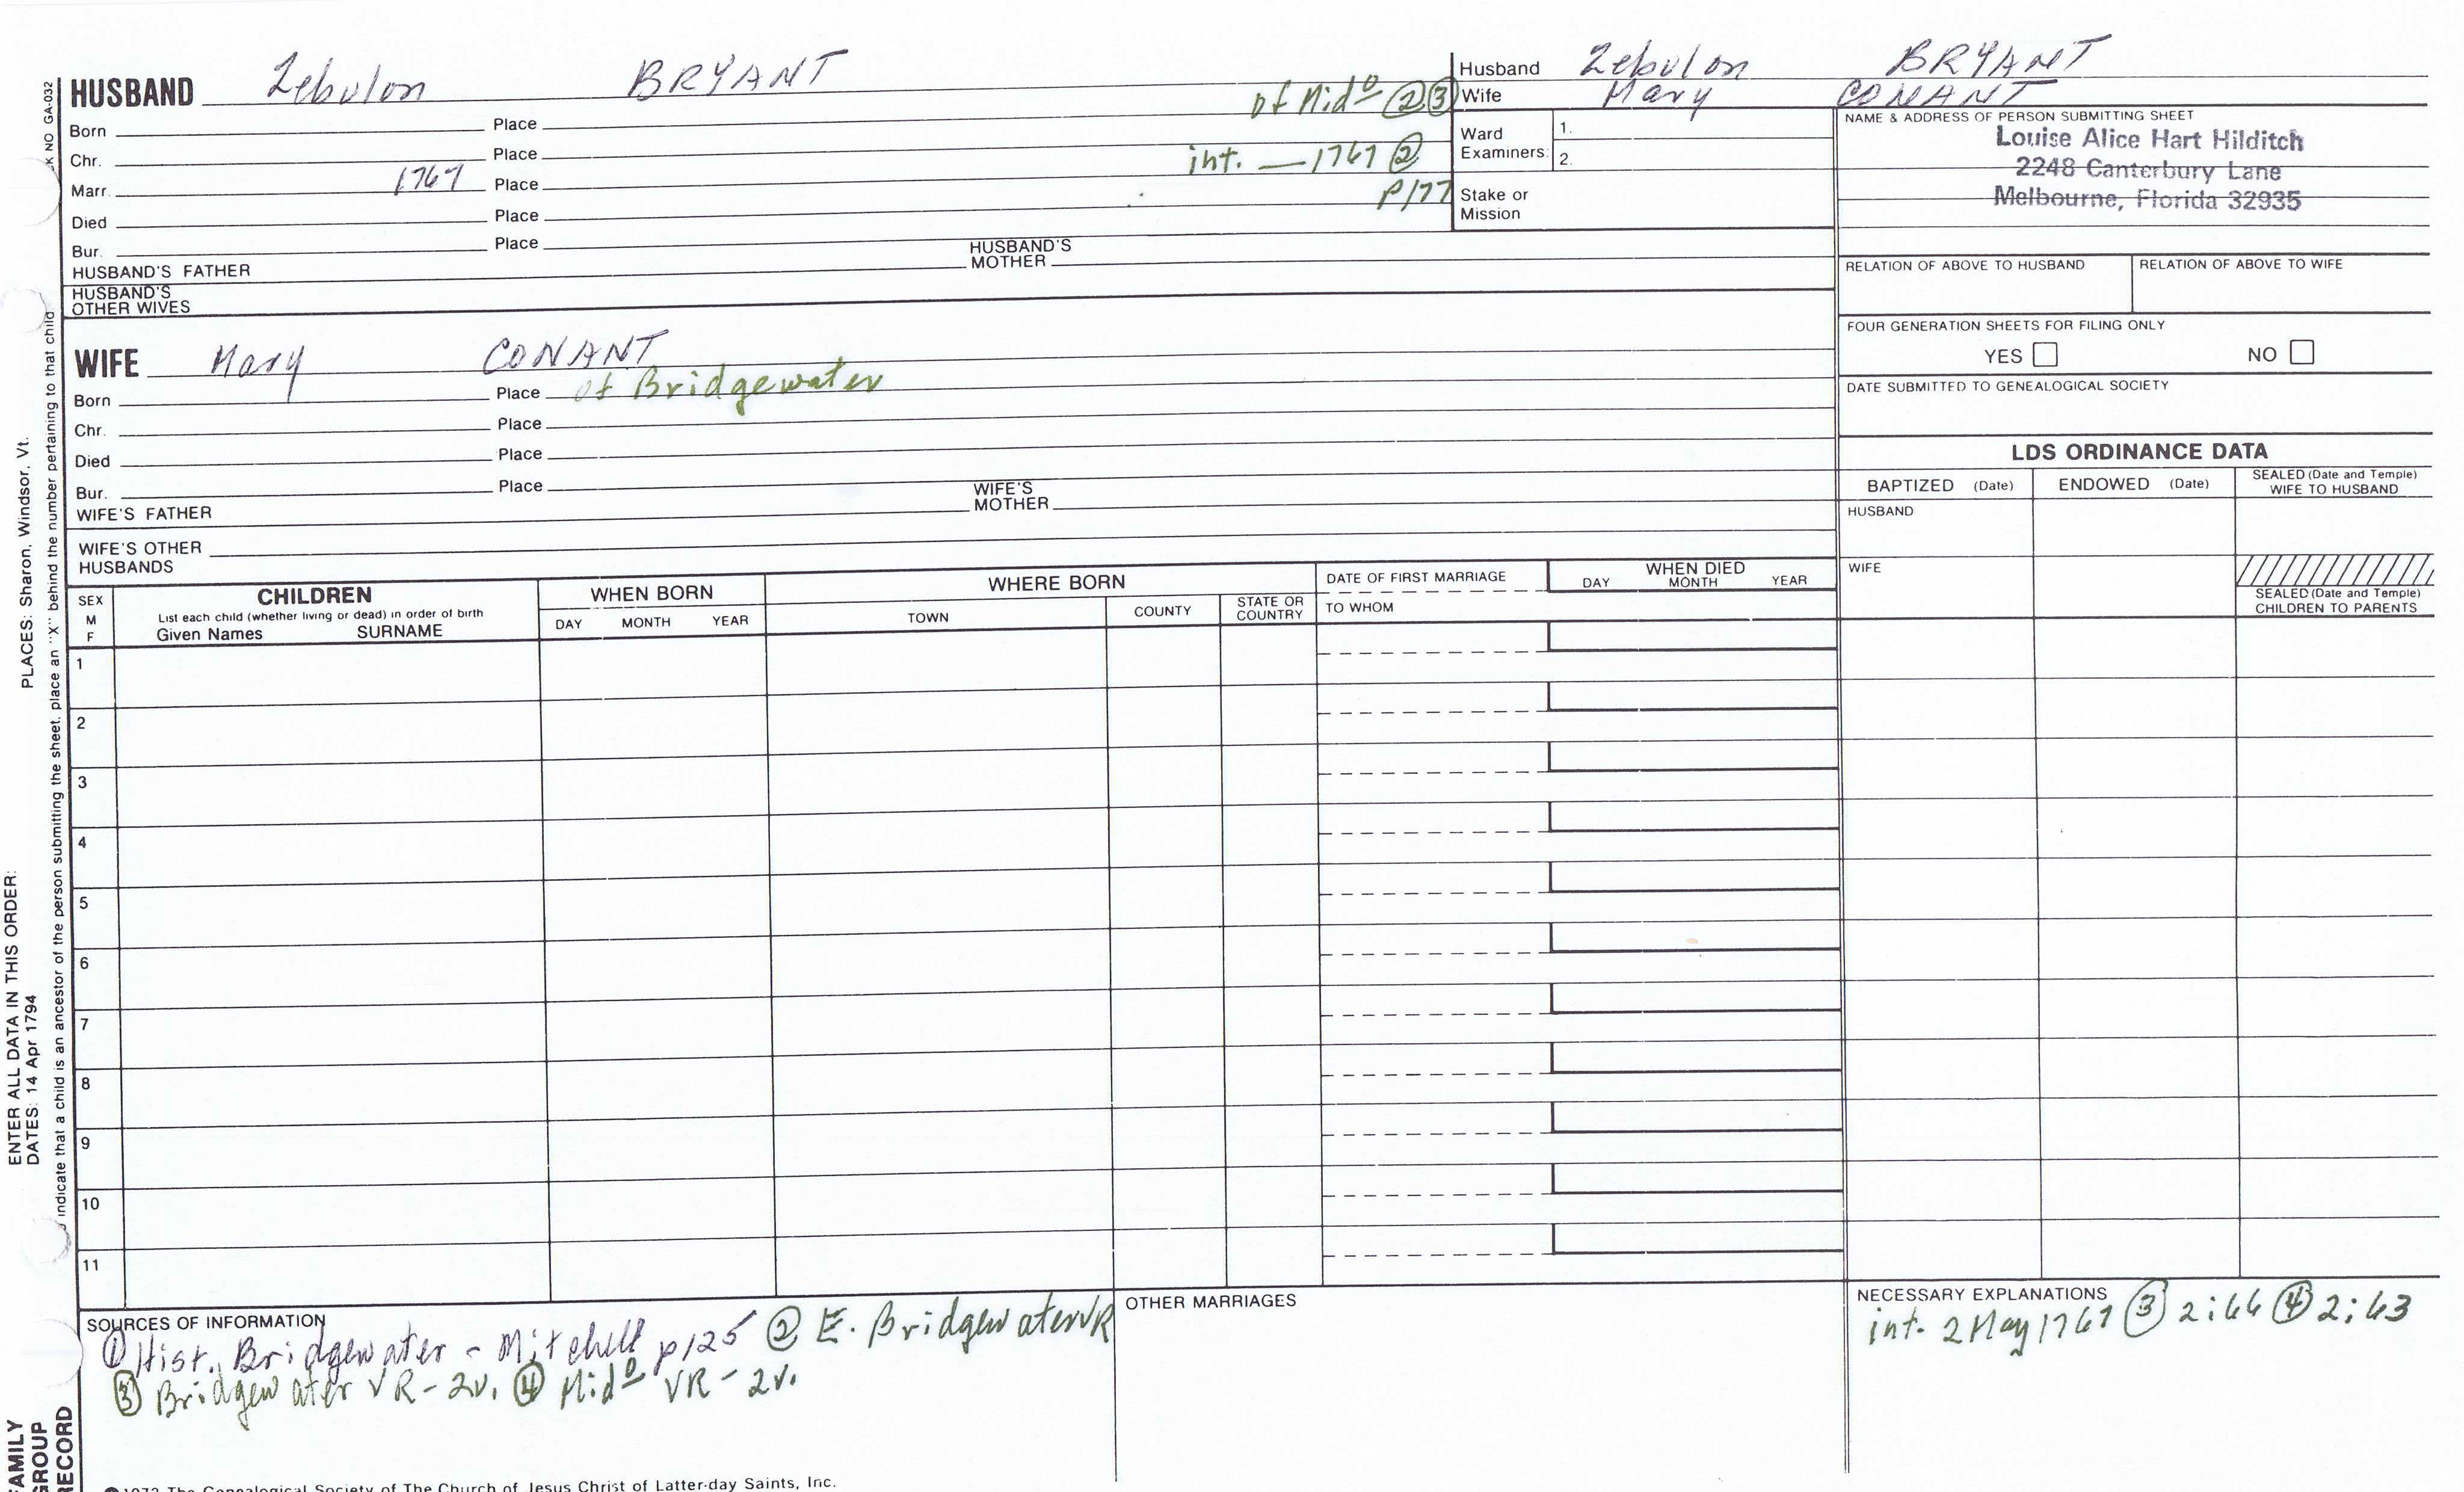 HUSBAND Zebulon BRYANT
Born Place of Mid^o ② ③
Chr. Place int. — 1767 ②
Marr. 1767 Place P177
Died Place
Bur. Place
HUSBAND'S FATHER HUSBAND'S MOTHER
HUSBAND'S OTHER WIVES
WIFE Mary CONANT
Born Place of Bridgewater
Chr. Place
Died Place
Bur. Place
WIFE'S FATHER WIFE'S MOTHER
WIFE'S OTHER HUSBANDS
Husband Zebulon BRYANT
Wife Mary CONANT
Ward Examiners: 1.
2.
Stake or Mission
NAME & ADDRESS OF PERSON SUBMITTING SHEET
Louise Alice Hart Hilditch
2248 Canterbury Lane
Melbourne, Florida 32935
RELATION OF ABOVE TO HUSBAND RELATION OF ABOVE TO WIFE
FOUR GENERATION SHEETS FOR FILING ONLY
YES NO
DATE SUBMITTED TO GENEALOGICAL SOCIETY
LDS ORDINANCE DATA
BAPTIZED (Date) ENDOWED (Date) SEALED (Date and Temple) WIFE TO HUSBAND
HUSBAND
WIFE
SEALED (Date and Temple) CHILDREN TO PARENTS
SEX M F
CHILDREN
List each child (whether living or dead) in order of birth
Given Names SURNAME
WHEN BORN
DAY MONTH YEAR
WHERE BORN
TOWN COUNTY STATE OR COUNTRY
DATE OF FIRST MARRIAGE
TO WHOM
WHEN DIED
DAY MONTH YEAR
1
2
3
4
5
6
7
8
9
10
11
SOURCES OF INFORMATION
① Hist., Bridgewater - Mitchell p125 ② E. Bridgewater VR
③ Bridgewater VR - 2v. ④ Mid^o VR - 2v.
OTHER MARRIAGES
NECESSARY EXPLANATIONS
int. 2 May 1767 ③ 2:66 ④ 2:63
K NO GA-032
indicate that a child is an ancestor of the person submitting the sheet, place an "X" behind the number pertaining to that child
PLACES: Sharon, Windsor, Vt.
ENTER ALL DATA IN THIS ORDER:
DATES: 14 Apr 1794
FAMILY
GROUP
RECORD
The Genealogical Society of The Church of Jesus Christ of Latter-day Saints, Inc.